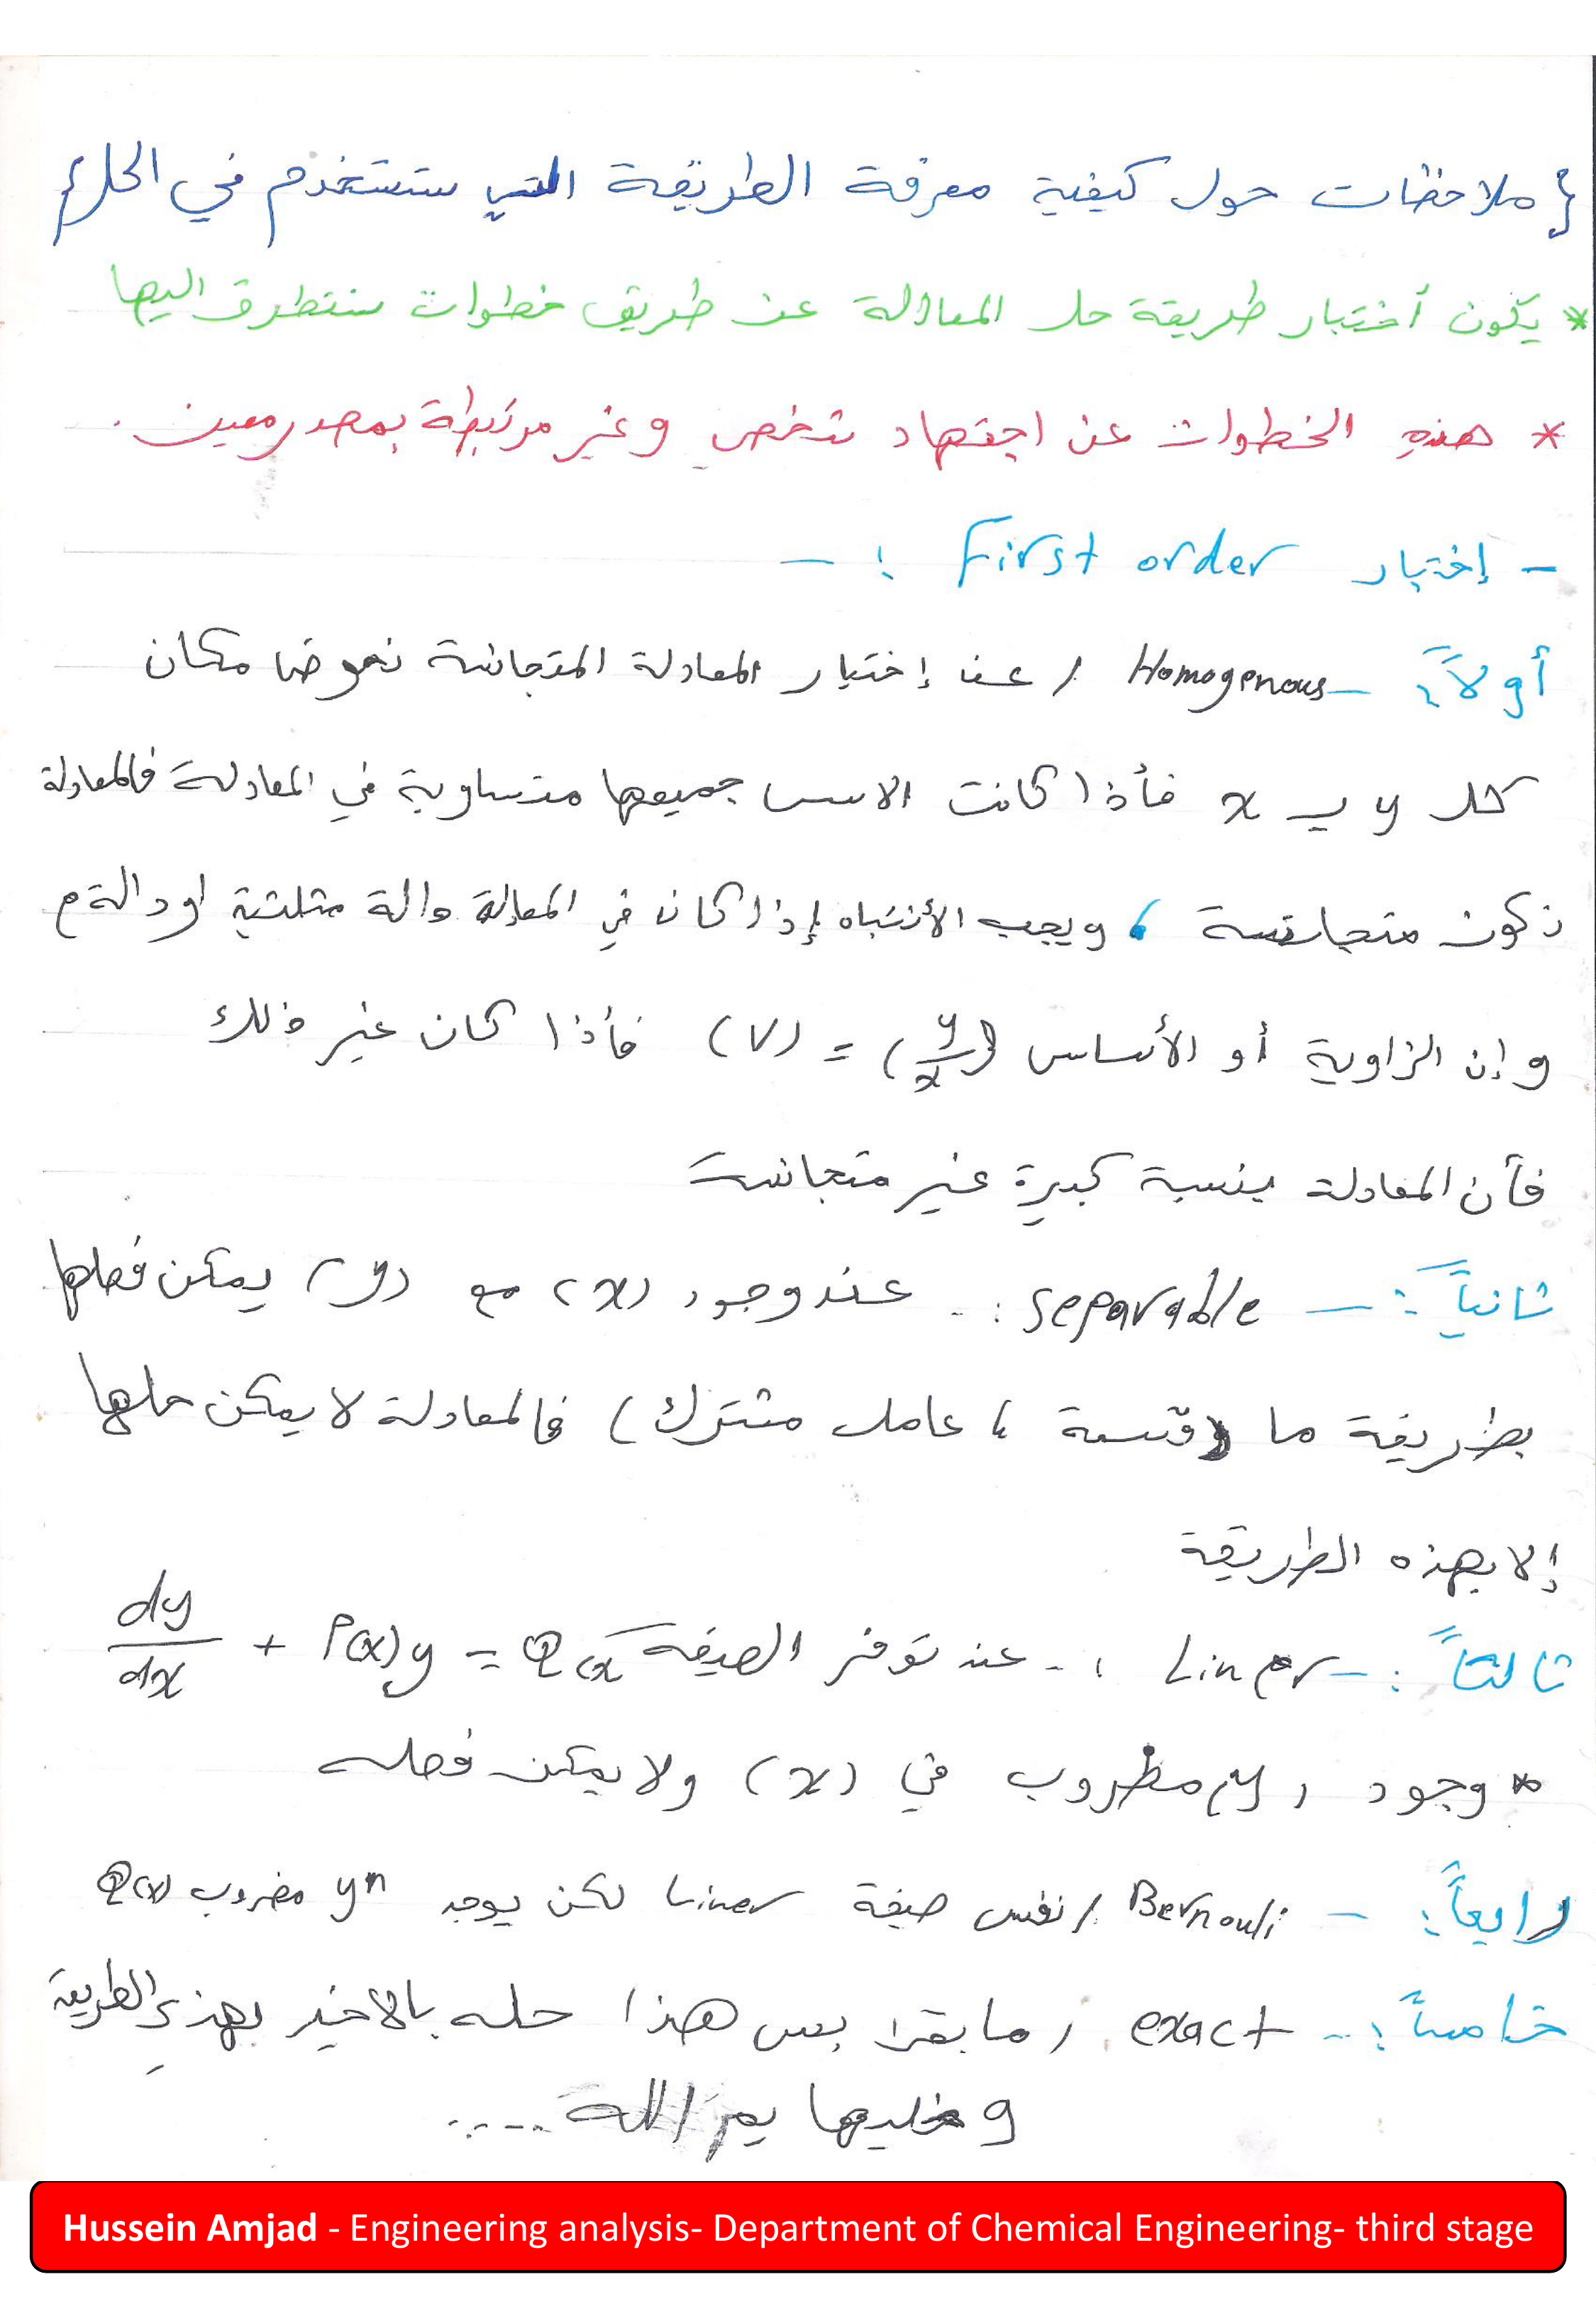 {ملاحظات حول كيفية معرفة الطريقة التي ستستخدم في الحل}
* يكون أختبار طريقة حل المعادلة عن طريق خطوات سنتطرق اليها
* هذه الخطوات عن اجتهاد شخصي وغير مرتبطة بمصدر معين.
- إختبار First order :-
أولاً :- Homogenous / عند إختبار المعادلة المتجانسة نعوض مكان
كل y بـ x فأذا كانت الاسس جميعها متساوية في المعادلة فالمعادلة
تكون متجانسة ، ويجب الأنتباه إذا كان في المعادلة دالة مثلثية او دالة
وإن الزاوية أو الأساس (y/x) = (V) فأذا كان غير ذلك
فأن المعادلة بنسبة كبيرة غير متجانسة
ثانياً :- separable :- عند وجود (x) مع (y) يمكن فصلها
بطريقة ما (قسمة ، عامل مشترك) فالمعادلة لا يمكن حلها
إلا بهذه الطريقة
ثالثاً :- Linear :- عند توفر الصيغة dy/dx + P(x)y = Q(x)
* وجود (y) مظروب في (x) ولا يمكن فصله
رابعاً :- Bernouli / نفس صيغة Liner لكن يوجد yⁿ مضروب Q(x)
خامساً :- exact / ما بقى بس هذا حله بالاخير بهذي الطريقة
وخليها يم الله ....
Hussein Amjad - Engineering analysis- Department of Chemical Engineering- third stage